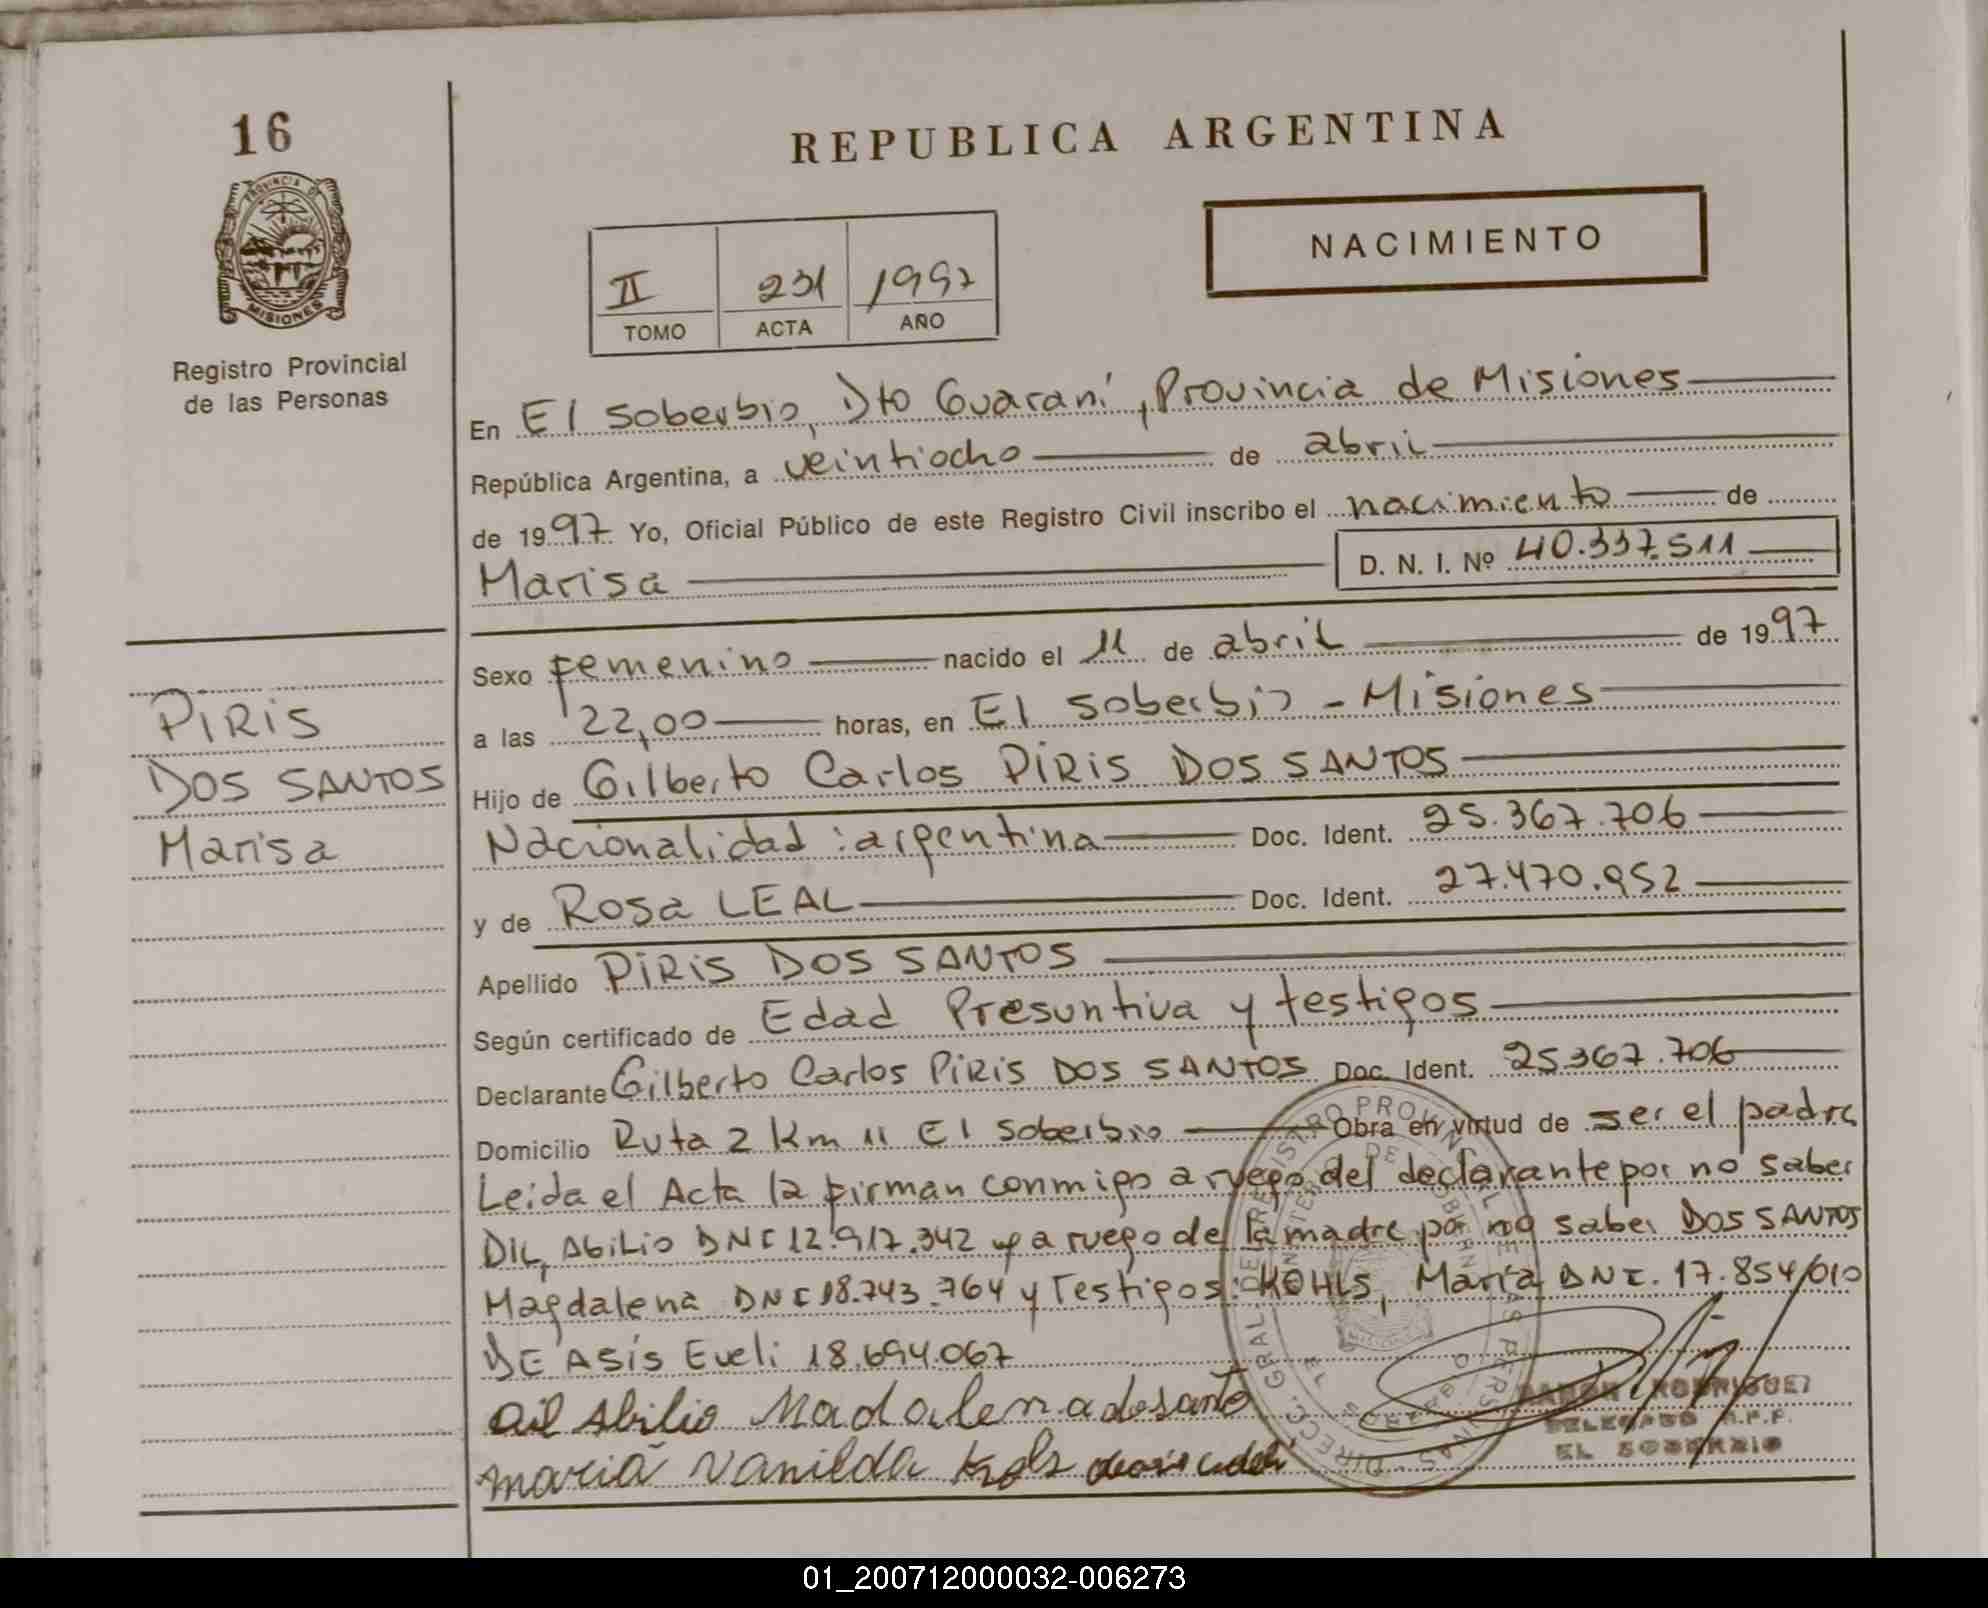 16
REPUBLICA ARGENTINA
PROVINCIA DE
MISIONES
NACIMIENTO
II 231 1997
TOMO ACTA AÑO
Registro Provincial
de las Personas
En El Soberbio, Dto Guaraní, Provincia de Misiones
República Argentina, a veintiocho de abril
de 1997 Yo, Oficial Público de este Registro Civil inscribo el nacimiento de
Marisa D. N. I. Nº 40.337.511
Sexo femenino nacido el 11 de abril de 1997
a las 22,00 horas, en El Soberbio - Misiones
PIRIS
DOS SANTOS
Marisa
Hijo de Gilberto Carlos PIRIS DOS SANTOS
Nacionalidad: argentina Doc. Ident. 25.367.706
y de Rosa LEAL Doc. Ident. 27.470.952
Apellido PIRIS DOS SANTOS
Según certificado de Edad Presuntiva y testigos
Declarante Gilberto Carlos PIRIS DOS SANTOS Doc. Ident. 25367.706
Domicilio Ruta 2 Km 11 El Soberbio Obra en virtud de ser el padre
Leida el Acta la firman conmigo a ruego del declarante por no saber
DIL, Abilio DNI 12.917.342 y a ruego de la madre por no saber DOS SANTOS
Magdalena DNI 18.743.764 y Testigos: KOHLS, María DNI. 17.854/010
DE ASIS Eveli 18.694.067
Dil Abilio Madalena dosanto
maria Vanilda
RODRIGUEZ
DELEGADO R.P.P.
EL SOBERBIO
01_200712000032-006273